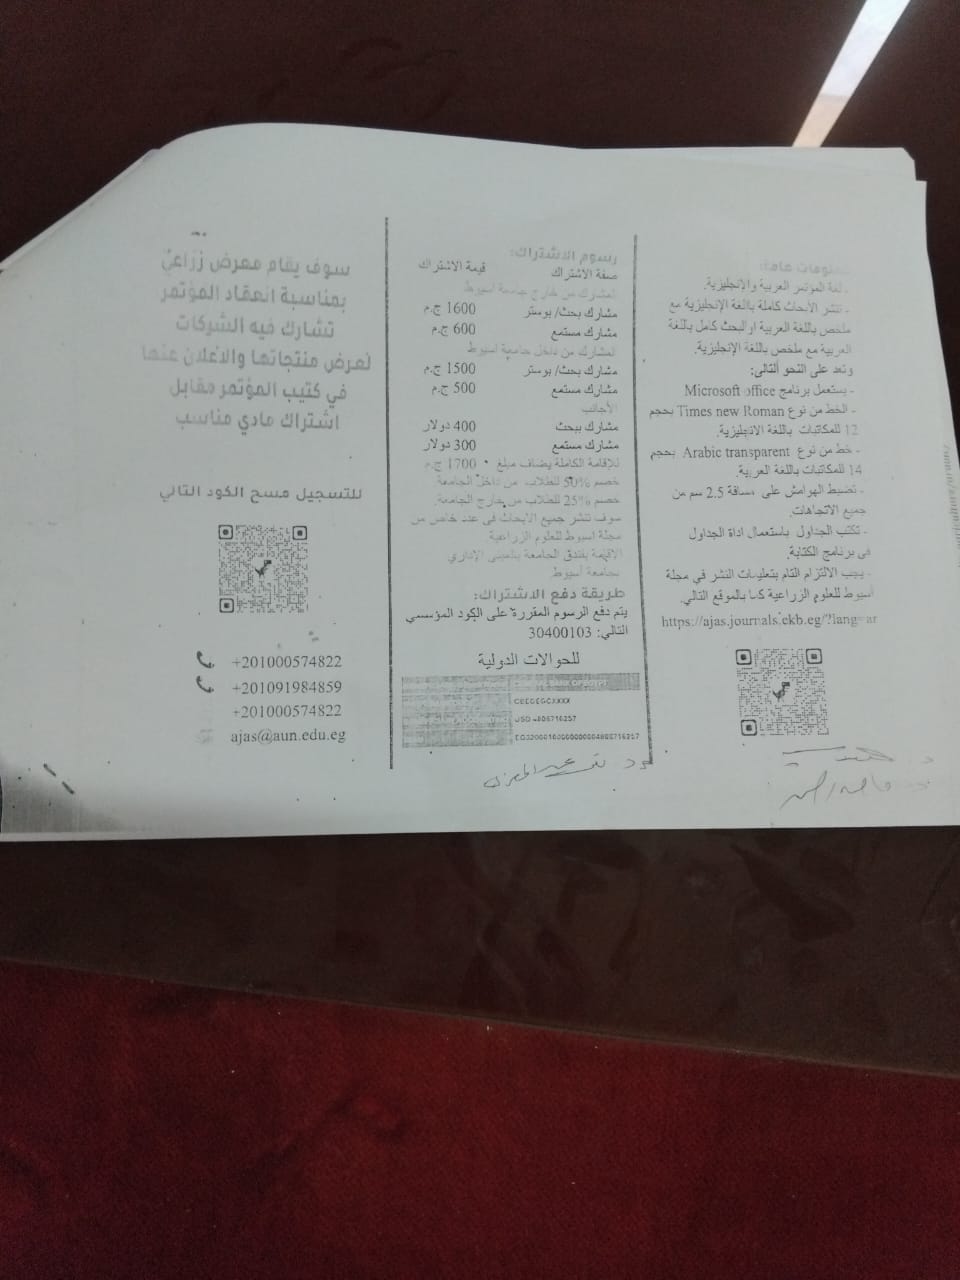 معلومات عامة:
- لغة المؤتمر العربية والإنجليزية.
- تنشر الأبحاث كاملة باللغة الإنجليزية مع
ملخص باللغة العربية او البحث كامل باللغة
العربية مع ملخص باللغة الإنجليزية.
وتعد على النحو التالى:
- يستعمل برنامج Microsoft office
- الخط من نوع Times new Roman بحجم
12 للمكاتبات باللغة الانجليزية.
- خط من نوع Arabic transparent بحجم
14 للمكاتبات باللغة العربية.
- تضبط الهوامش على مسافة 2.5 سم من
جميع الاتجاهات.
- تكتب الجداول باستعمال اداة الجداول
فى برنامج الكتابة.
- يجب الالتزام التام بتعليمات النشر في مجلة
أسيوط للعلوم الزراعية كما بالموقع التالي.
https://ajas.journals.ekb.eg/?lang=ar
رسوم الاشتراك:
صفة الاشتراك قيمة الاشتراك
المشارك من خارج جامعة أسيوط
مشارك بحث/ بوستر 1600 ج.م
مشارك مستمع 600 ج.م
المشارك من داخل جامعة أسيوط
مشارك بحث/ بوستر 1500 ج.م
مشارك مستمع 500 ج.م
الأجانب
مشارك ببحث 400 دولار
مشارك مستمع 300 دولار
للإقامة الكاملة يضاف مبلغ 1700 ج.م
خصم 50% للطلاب من داخل الجامعة
خصم 25% للطلاب من خارج الجامعة.
سوف تنشر جميع الأبحاث فى عدد خاص من
مجلة اسيوط للعلوم الزراعية.
الاقامة بفندق الجامعة بالمبنى الإداري
بجامعة أسيوط
طريقة دفع الاشتراك:
يتم دفع الرسوم المقررة على الكود المؤسسي
التالي: 30400103
للحوالات الدولية
OF EGYPT
CBEGEGCXXXX
سوف يقام معرض زراعي
بمناسبة انعقاد المؤتمر
تشارك فيه الشركات
لعرض منتجاتها والاعلان عنها
في كتيب المؤتمر مقابل
اشتراك مادي مناسب
للتسجيل مسح الكود التالي
+201000574822
+201091984859
+201000574822
ajas@aun.edu.eg